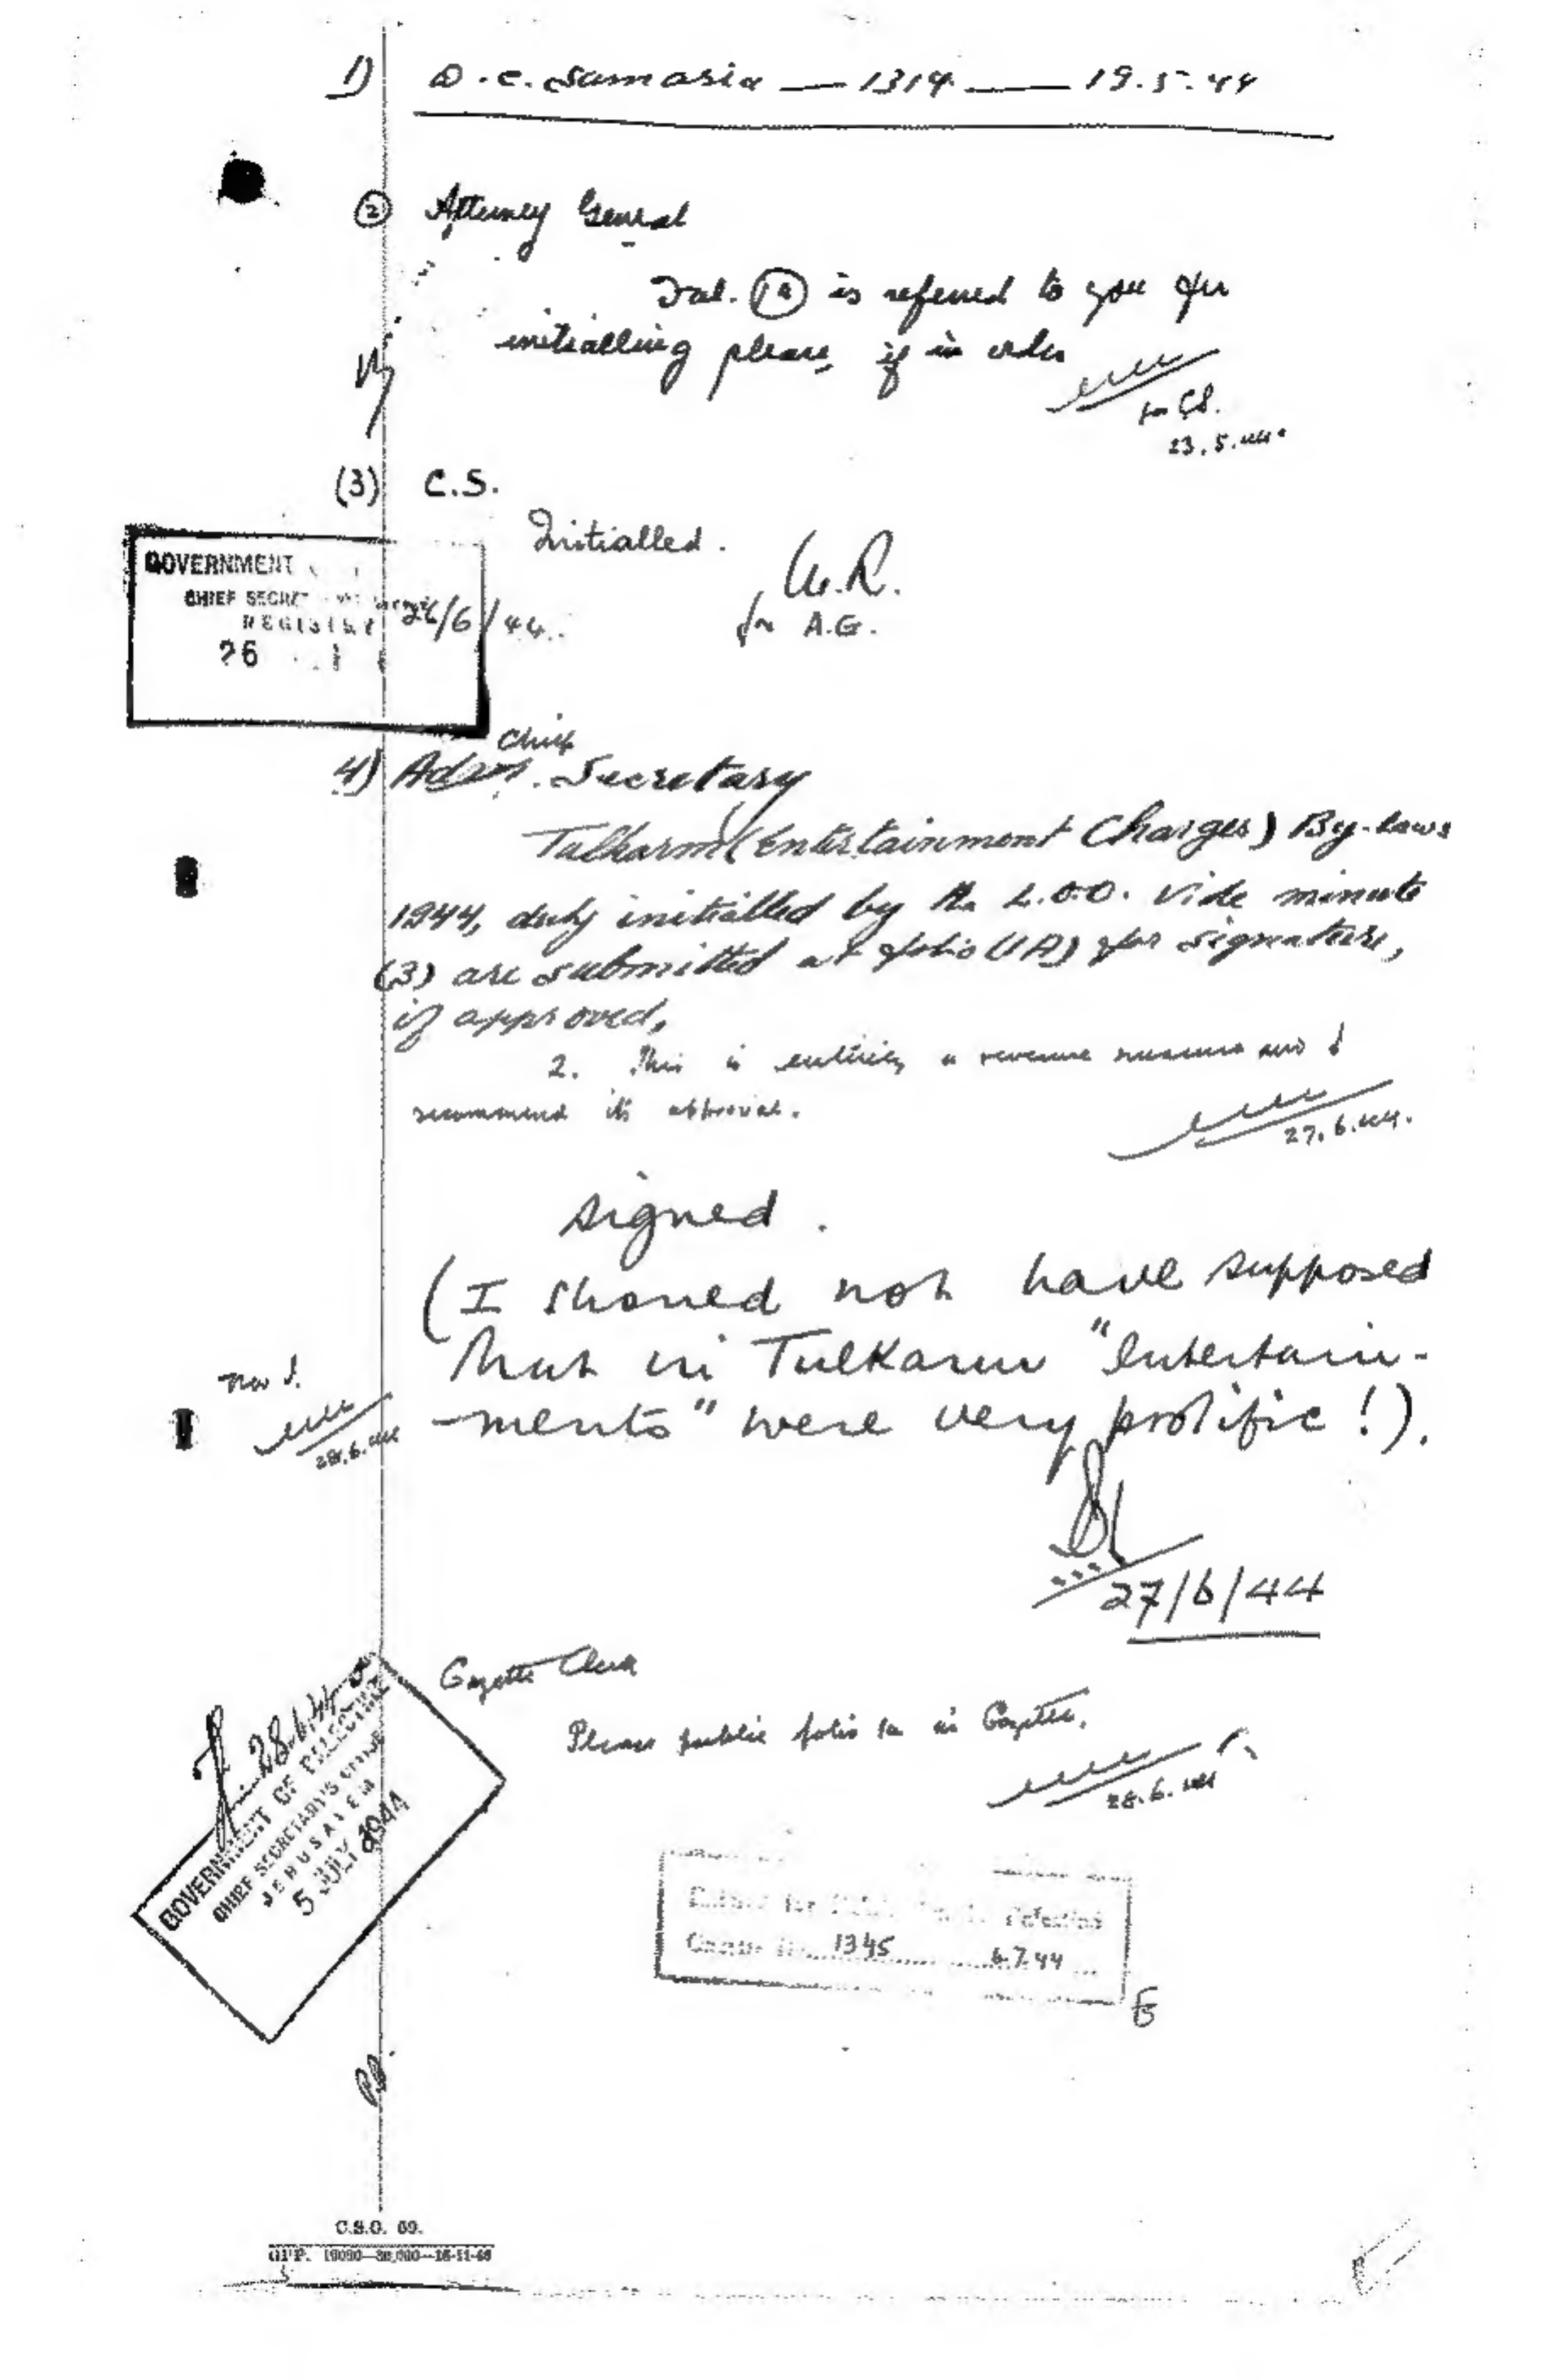 1) D.C. Samaria — 1314 — 19.5.44
(2) Attorney General
Fol. (1A) is referred to you for
initialling please, if in order
for CS.
23.5.44.
(3) C.S.
Initialled.
for A.G.
GOVERNMENT
CHIEF SECRET
REGISTRY
26
26/6/44.
Chief
4) Adm. Secretary
Tulkarm (Entertainment Charges) By-laws
1944, duly initialled by the L.O.O. vide minute
(3) are submitted at folio (1A) for signature,
if approved.
2. This is entirely a revenue measure and I
recommend its approval.
27.6.44.
signed.
(I should not have supposed
that in Tulkarm "entertain-
-ments" were very prolific!).
28.6.44
27/6/44
Gazette Clerk
Please public folio 1a in Gazette.
28.6.44
28.6.44
GOVERNMENT OF PALESTINE
CHIEF SECRETARY'S OFFICE
JERUSALEM
5 JULY 1944
Palestine
Gazette No. 1345 6.7.44
C.S.O. 69.